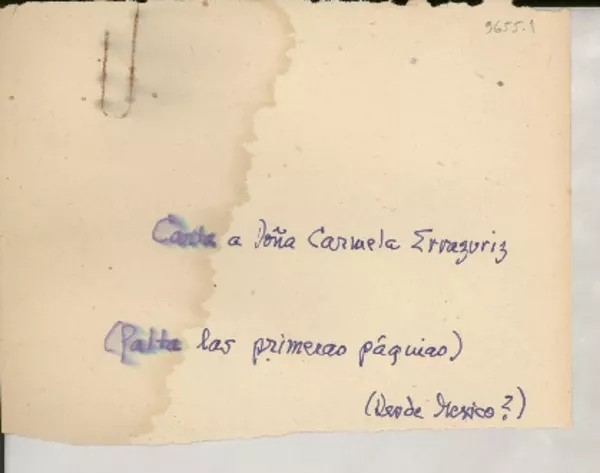 9655.1
Carta a Doña Carmela Errazuriz
(Falta las primeras páginas)
(Desde Mexico?)